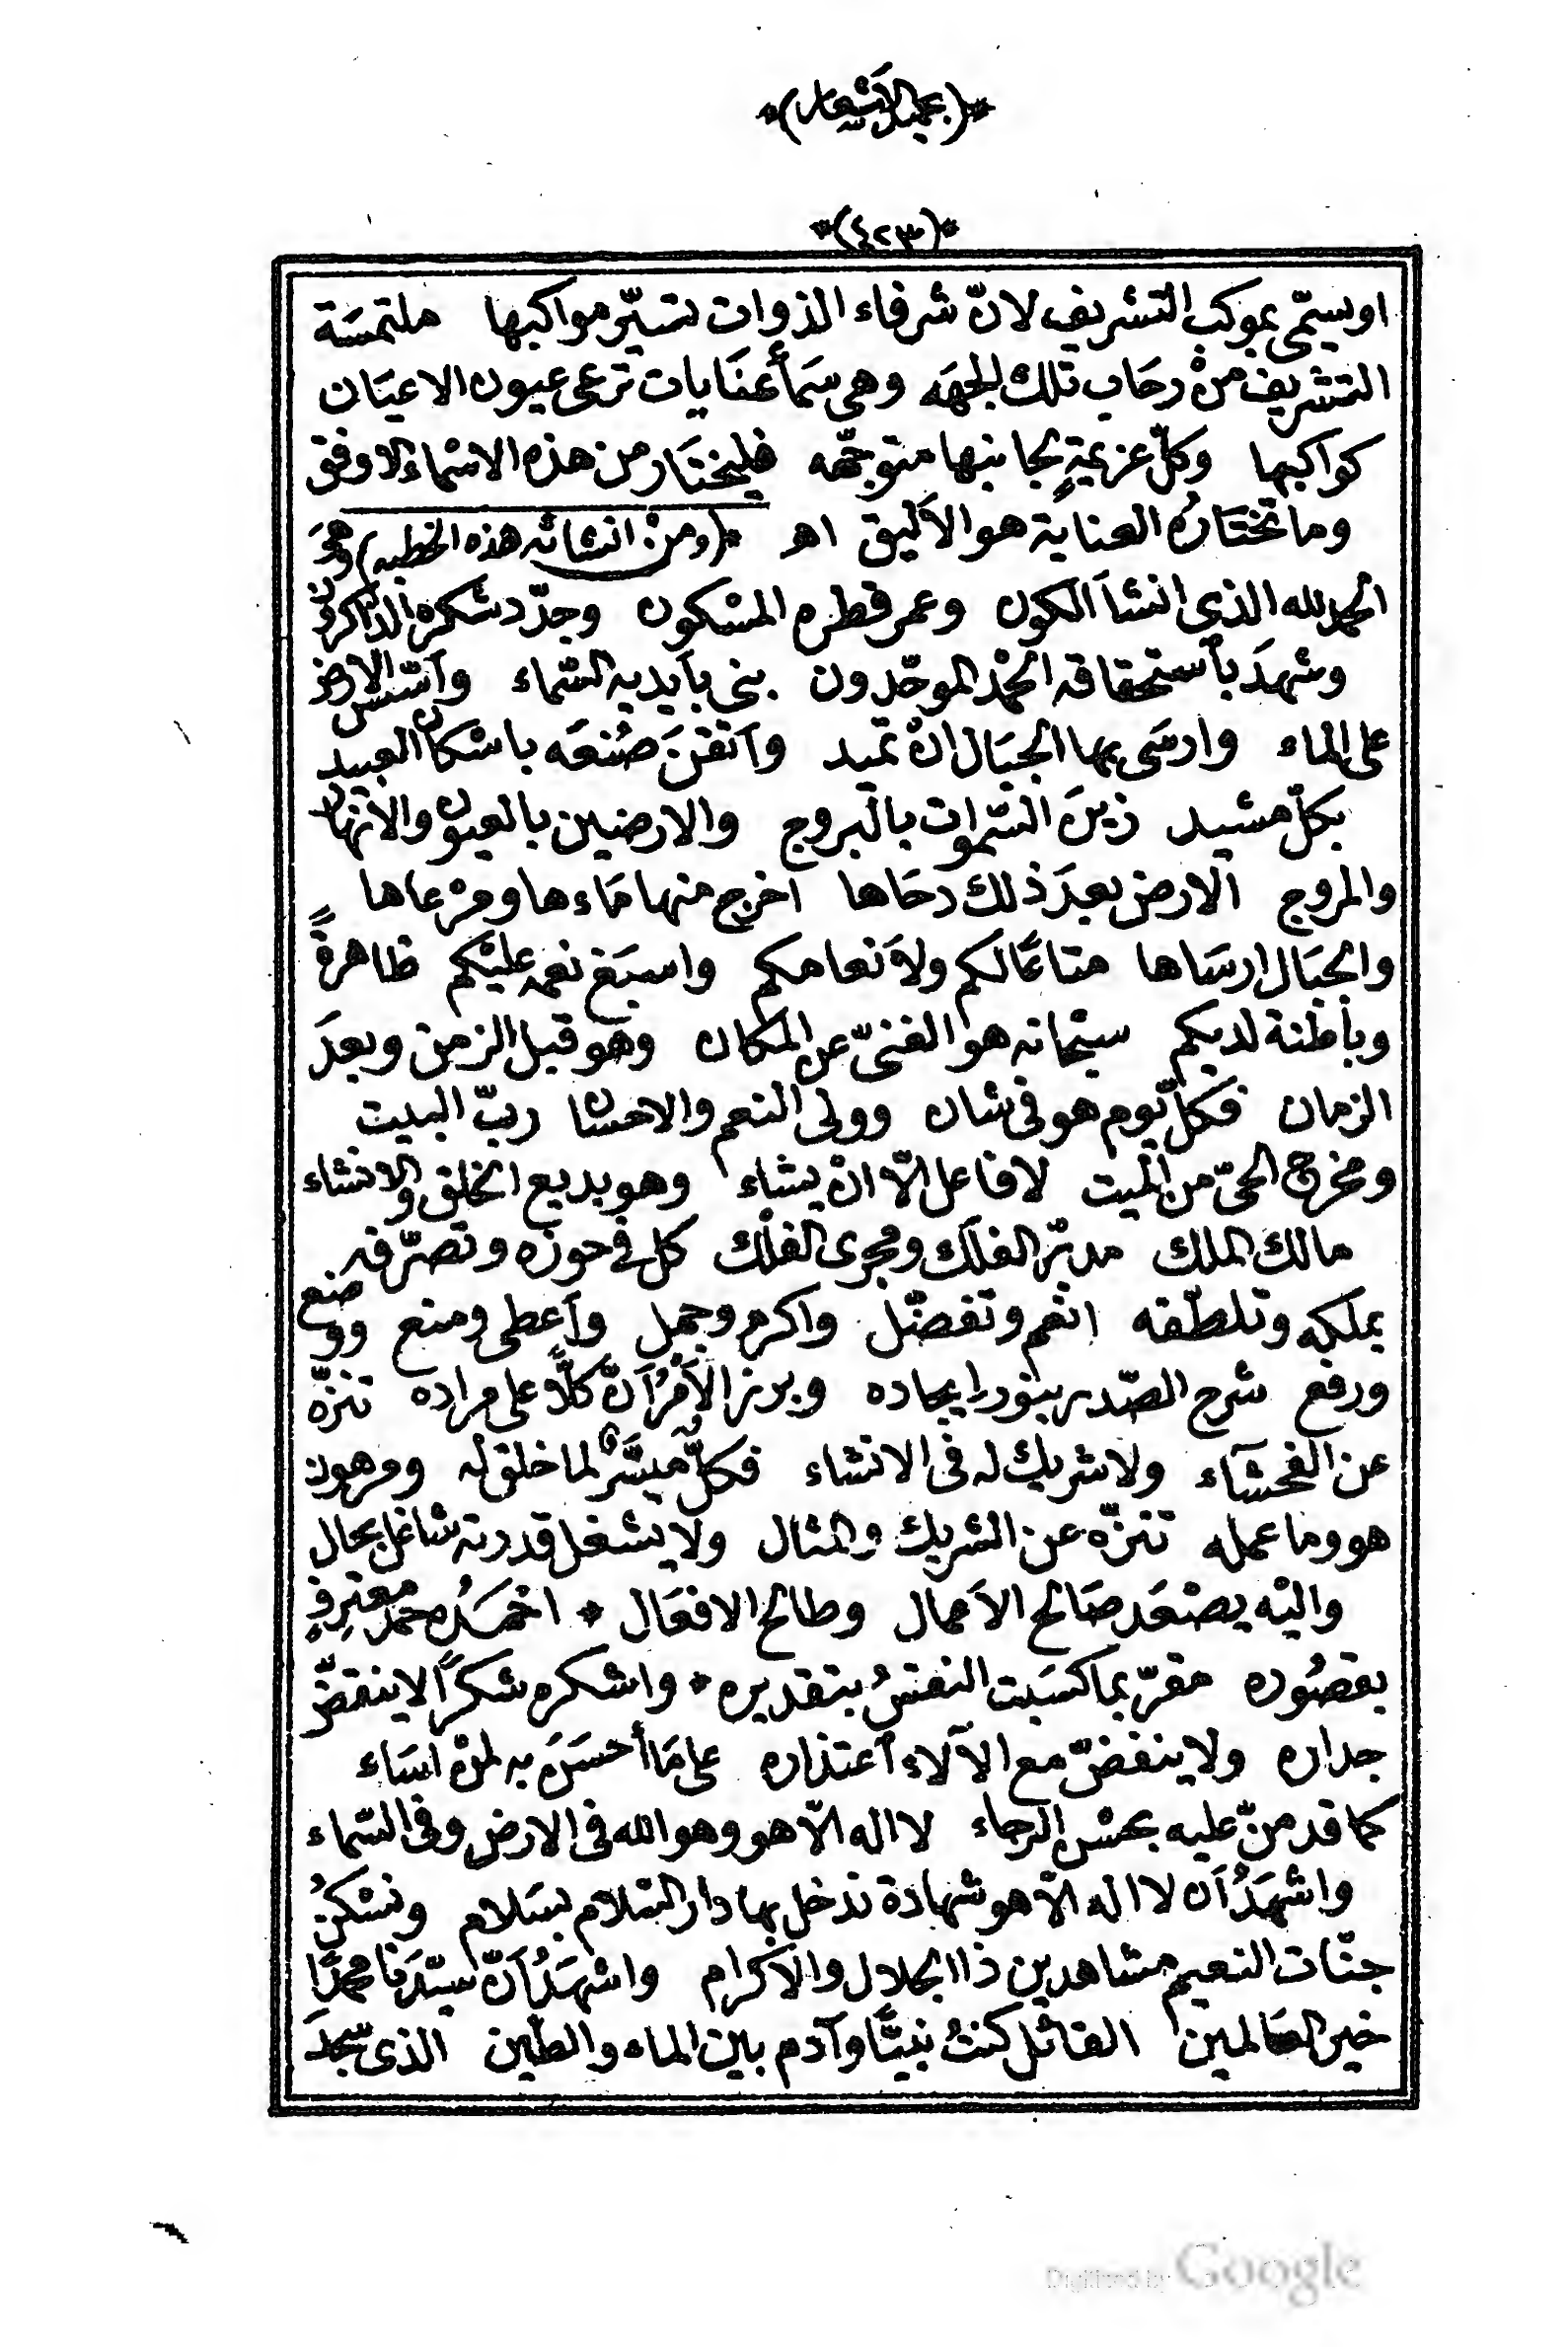 *(بجميل الأشعار)*
*(٤٢٣)*
او يسمّى بموكب التشريف لانّ شرفاء الذوات تسيّر مواكبها ملتمسَة
التشريف منْ رحَاب تلك الجهَه وهى سَمأ عنَايات ترعى عيون الاعيَان
كواكبها وكلّ عزيمةٍ بجانبها متوجّهه فليختَار من هذه الاسْماء الاوفق
وما تختَارُه العناية هو الأليق اهـ *(ومنْ انشائه هذه الخطبه) وهىَ
الحمد لله الذى انشأ الكون وعمر قطره المسْكون وجدّد شكره الذّاكرون
وشهدَ بأستحقاقه الحمْد الموحّدون بنى بأيديه السّماء وأسّسَ الارض
على الماء وارسَى بها الجبَال انْ تميد وأتقنَ صُنعَه باسْكان العبيد
بكلّ مشيد زينَ السّموات بالبروج والارضين بالعيون والانهار
والمروج الارض بعدَ ذلك دحَاها اخرج منها مَاءها ومرْعاها
والجبَال ارسَاها متاعًا لكم ولأنعامكم واسبَغ نعمه عليْكم ظاهرةً
وباطنة لديكم سبْحانه هو الغنىّ عن المكان وهو قبل الزمن وبعدَ
الزمان فكلّ يوم هو فى شان وولى النعم والاحسان ربّ البيت
ومخرج الحىّ من الميت لا فاعل الّا انْ يشاء وهو بديع الخلق والانشاء
مالك الملك مدبّر الفلَك ومجرى الفلْك كل فى حوزه وتصرّفه
بملكه وتلطّفه انعم وتفضّل واكرم وجمل وأعطى ومنع ووضع
ورفع شرح الصّدر بنور ايجاده وبرز الأمْرُ أنّ كلًّا على مراده تنزّه
عن الفحشآء ولا شريك له فى الانشاء فكلّ ميسَّر لما خلق له ومرهون
هو وما عمله تنزّه عن الشريك والمثال ولا يشغل قدرته شاغل بحال
واليْه يصْعَد صَالح الأعمال وطالح الافعَال * احْمَدُه حمد معترفٍ
بقصُوره مقرّ بما كسَبت النفسُ بتقديره * واشكره شكرًا لا ينقضّ
جداره ولا ينفضّ مع الآلاء أعتذاره على مَا أحسَنَ به لمنْ اسَاء
كما قد منّ عليه بحسْن الرجاء لا اله الّا هو وهو الله فى الارض وفى السّماء
واشهَدُ أن لا اله الّا هو شهادة ندخل بها دار السّلام بسَلام ونسْكنُ
جنّات النعيم مشاهدين ذا الجلال والاكرام واشهَدُ أنّ سيّدَنا محمّدًا
خير العَالمين القائل كنتُ نبيًّا وآدم بين الماء والطّين الذى سجدَ
Digitized by Google